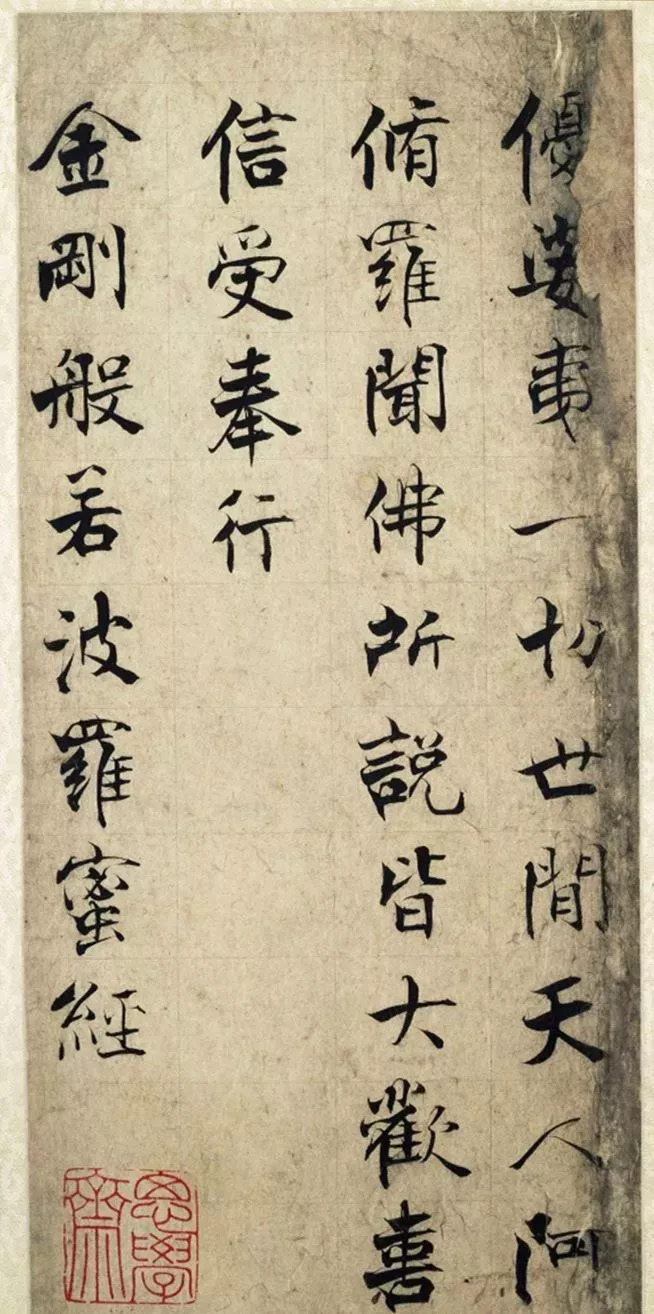 優婆夷一切世間天人阿
脩羅聞佛所説皆大歡喜
信受奉行
金剛般若波羅蜜經
思學齋